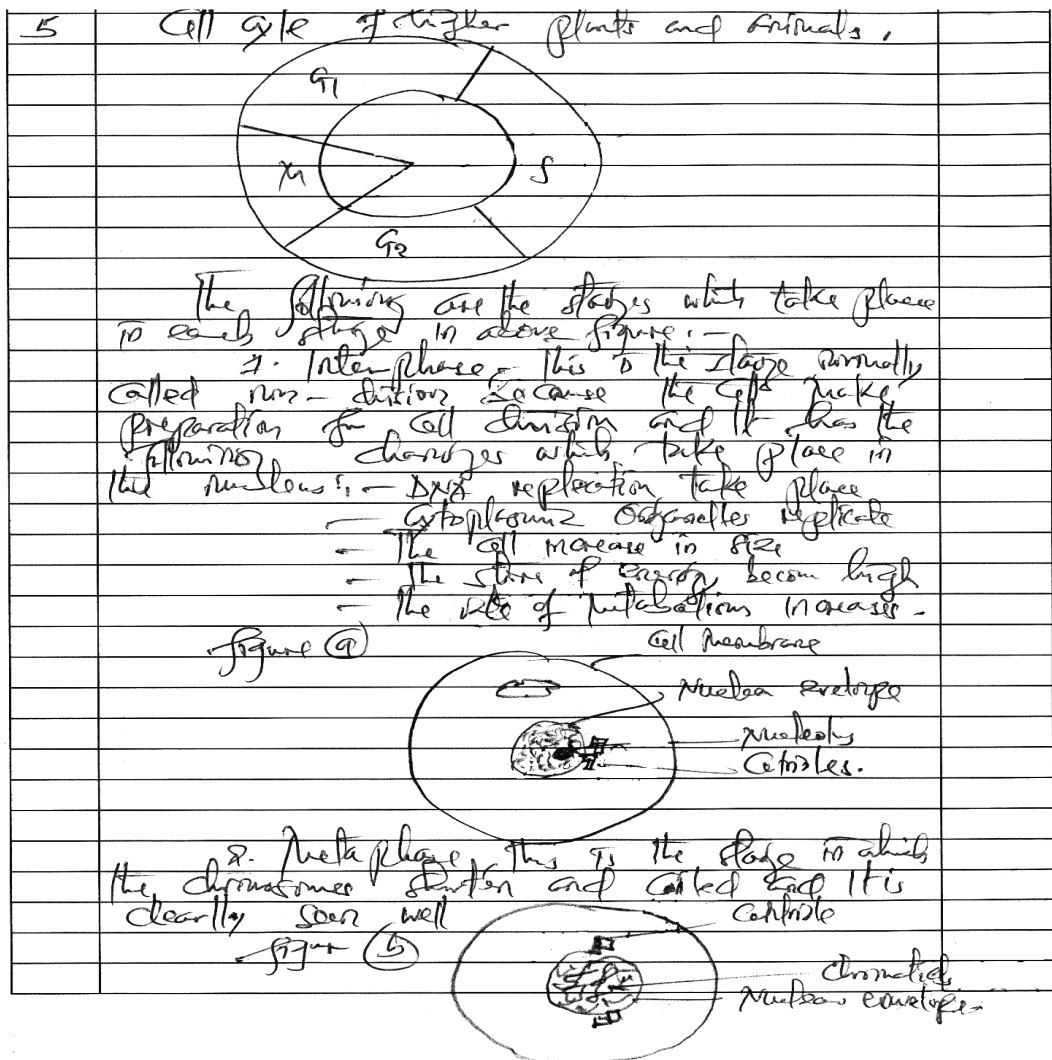 5 Cell cycle of higher plants and animals.
G1
M
S
G2
The following are the stages which take place
in each stage in above figure:-
1. Interphase - This is the stage normally
called non-division because the cell make
preparation for cell division and it has the
following changes which take place in
the nucleus:- DNA replication take place
- Cytoplasmic organelles replicate
- The cell increase in size
- The store of energy become high
- The rate of metabolism increases.
figure (a)
Cell membrane
Nuclear envelope
Nucleolus
Centrioles.
2. Metaphase This is the stage in which
the chromosomes shorten and coiled and it is
clearlly seen well
figure (b)
Centriole
Chromatid
Nuclear envelope.